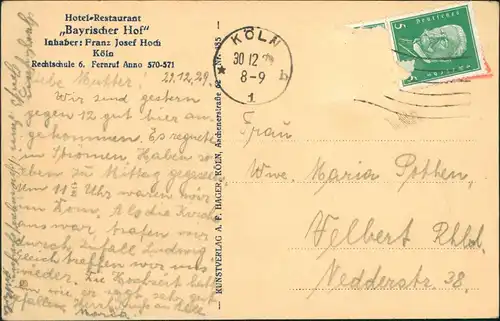 Hotel-Restaurant
„Bayrischer Hof"
Inhaber: Franz Josef Hoch
Köln
Rechtschule 6. Fernruf Anno 570-571
Liebe Mutter! 29.12.29.
Wir sind gestern
gegen 12 gut hier an-
gekommen. Es regnete
in Strömen. Haben so-
eben zu Mittag gegessen
Um 11 Uhr waren wir
im Dom. Als die Kirche
aus war trafen wir
durch Zufall Ludwig
gleich treffen wir uns
wieder. Die Hochzeit hat
ihm wie er sagt sehr gut
gefallen. Herzl. Grüße an alle
Maria.
KUNSTVERLAG A. P. HAGER, KÖLN, Aachenerstraße 62 Nr. 185
KÖLN
30 12 29
8-9
* b
1
5 Deutsches 5
Frau
Wwe. Maria Potten.
Velbert Rhld.
Nedderstr. 38.